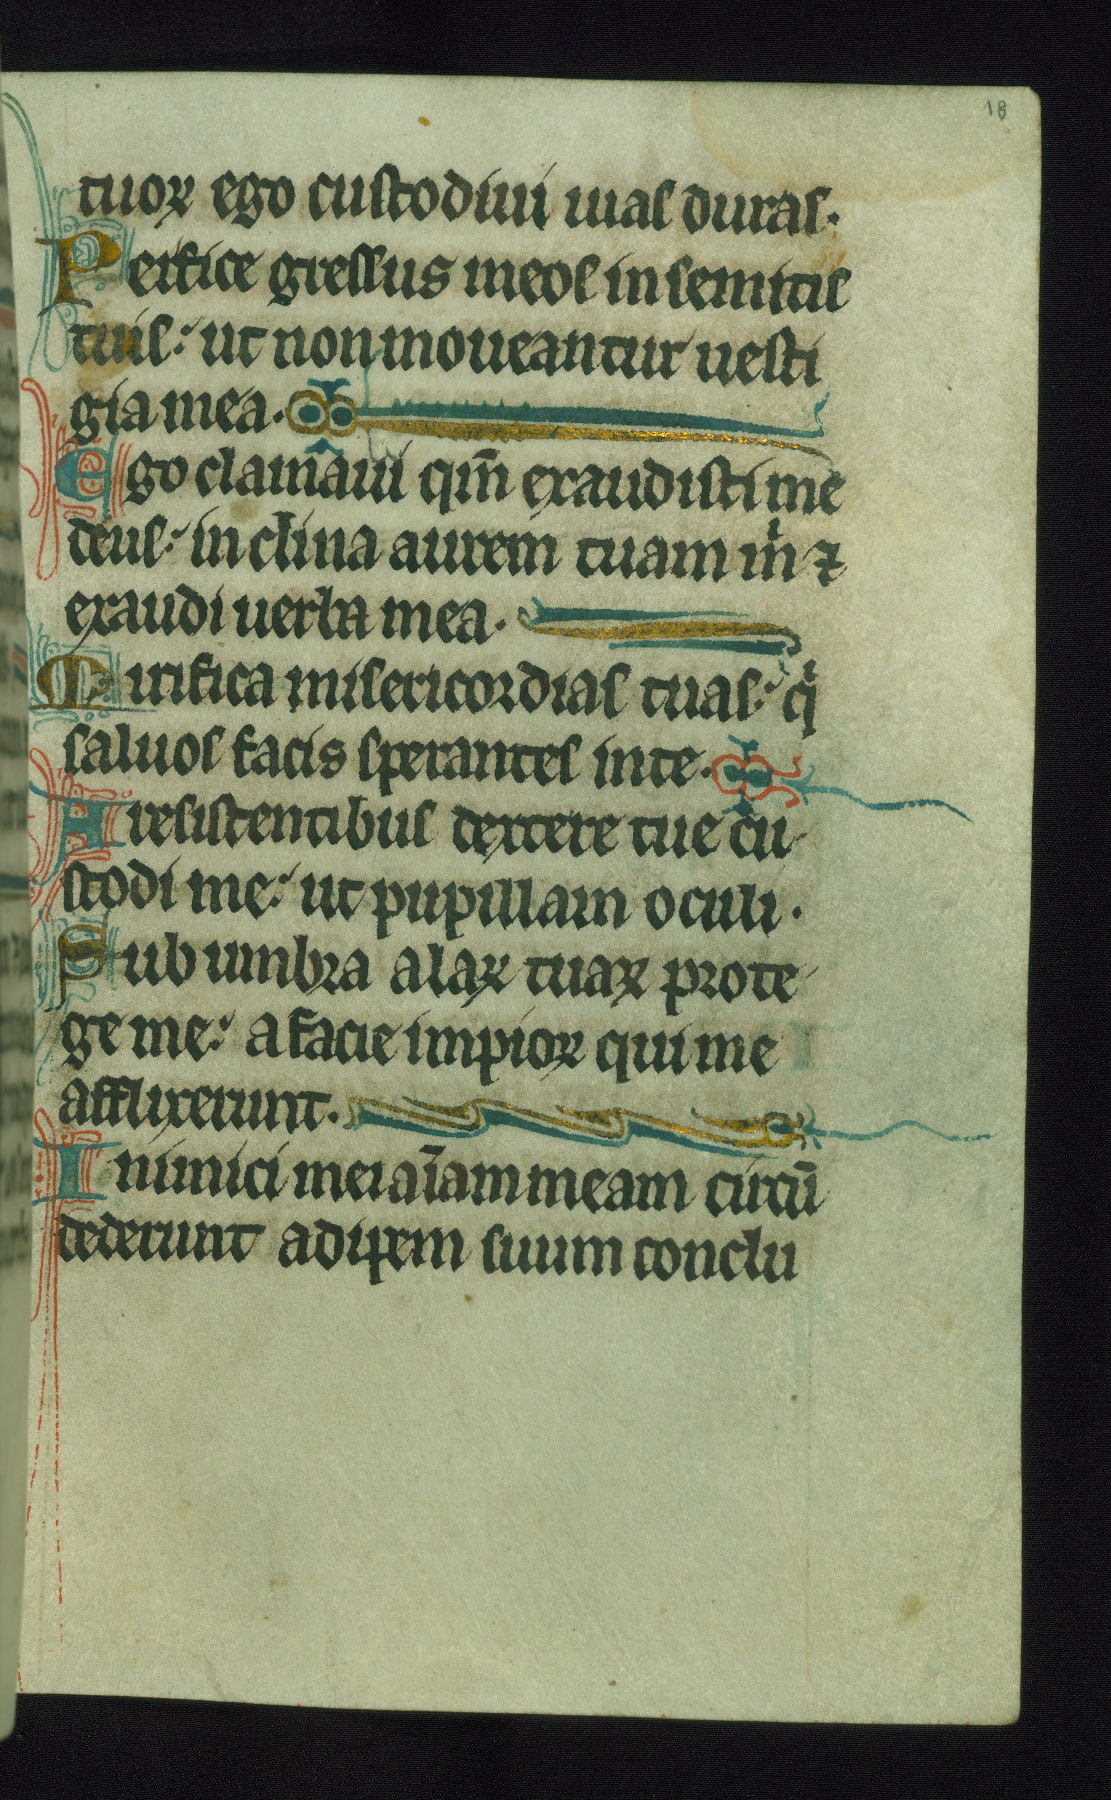 18
tuoꝝ ego custodiui uias duras.
Perfice gressus meos in semitis
tuis: ut non moueantur uesti
gia mea.
Ego clamaui qm̄ exaudisti me
deus: inclina aurem tuam m̍ ⁊
exaudi uerba mea.
Mirifica misericordias tuas: q̍
saluos facis sperantes in te.
A resistentibus dextere tue cu
stodi me: ut pupillam oculi.
Sub umbra alaꝝ tuaꝝ prote
ge me: a facie impioꝝ qui me
afflixerunt.
Inimici mei aīam meam circū
dederunt adipem suum conclu